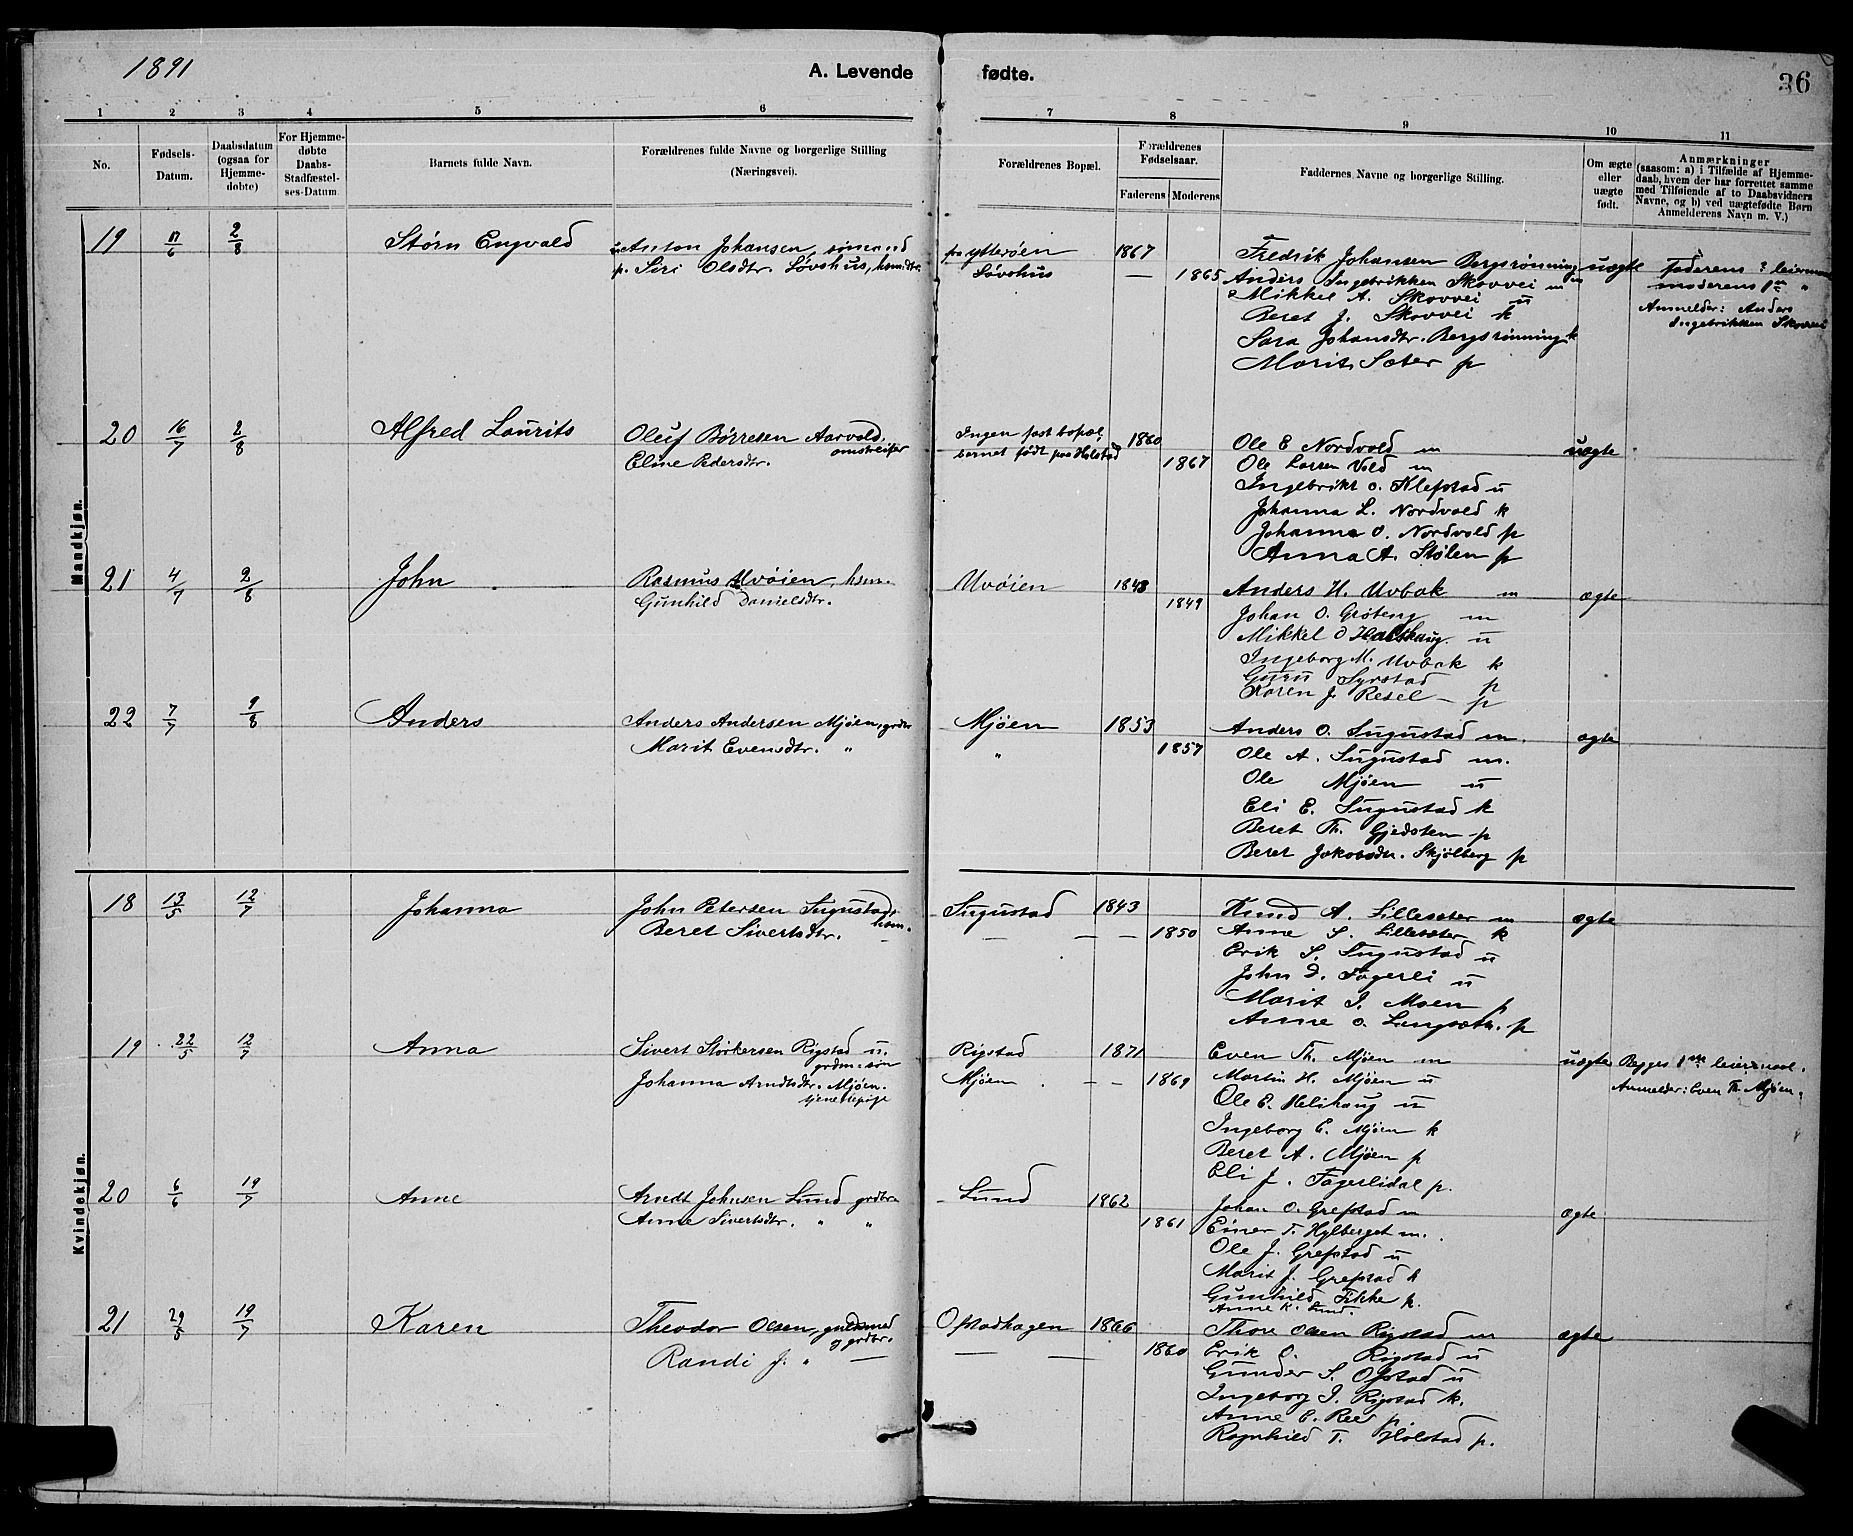 1891
A. Levende fødte.
36
1 2 3 4 5 6 7 8 9 10 11
No.
Fødsels-Datum.
Daabsdatum (ogsaa for Hjemme-døbte)
For Hjemme-døbte Daabs-Stadfæstel-ses-Datum
Barnets fulde Navn.
Forældrenes fulde Navne og borgerlige Stilling (Næringsvei).
Forældrenes Bopæl.
Forældrenes Fødselsaar.
Faderens Moderens
Faddernes Navne og borgerlige Stilling.
Om ægte eller uægte født.
Anmærkninger (saasom: a) i Tilfælde af Hjemme-daab, hvem der har forrettet samme med Tilføiende af to Daabsvidners Navne, og b) ved uægtefødte Børn Anmelderens Navn m. V.)
Mandkjøn.
19 17/6 2/8 Størn Engvald
u. Anton Johansen, sømand
p. Siri Olsdtr. Løvshus, hsmdtr.
fra Ytterøen 1867
Løvshus — 1865
Fredrik Johansen Bergsrønning m
Anders Ingebrikken Skovvei m
Mikkel A. Skovvei u
Beret J. Skovvei k
Sara Johansdtr. Bergsrønning k
Marit Sæter p
uægte
Faderens ? leiermaal
moderens 1ste "
Anmelder: Anders
Ingebrikken Skovvei
20 16/7 2/8 Alfred Laurits
Oluf Børresen Aarvold,
omstreifer
Eline Pedersdtr.
Ingen fast bopæl,
barnet født paa Holstad
1860
1867
Ole E Nordvold m
Ole Larsen Vold m
Ingebrikt O. Klefstad u
Johanna L. Nordvold k
Johanna O. Nordvold p
Anna A. Stølen p
uægte
21 4/7 2/8 John
Rasmus Uvøien, hsm.
Gunhild Danielsdtr.
Uvøien 1843
1849
Anders H. Uvbak m
Johan O. Grøteng m
Mikkel O Halshaug u
Ingeborg M. Uvbak k
Guru Syrstad p
Karen J. Resel — p
ægte
22 7/7 9/8 Anders
Anders Andersen Mjøen, grdbr
Marit Evensdtr. "
Mjøen 1853
" 1857
Anders O. Sugustad m.
Ole A. Sugustad m.
Ole Mjøen u
Eli E. Sugustad k
Beret Th. Gjedsten p
Beret Jakobsdtr. Skjølberg p
ægte
Kvindekjøn.
18 13/5 12/7 Johanna
John Petersen Sugustad,
hsm.
Beret Sivertsdtr. —
Sugustad 1843
— — — 1850
Knud A. Lillesæter m
Anne S. Lillesæter k
Erik S. Sugustad u
John D. Fagerli u
Marit I. Moen p
Anne O. Langsæth. p
ægte
19 22/5 12/7 Anna
Sivert Størkersen Rigstad u.
grdm. søn
Johanna Arndtsdtr. Mjøen.
tjenestepige
Rigstad 1871
Mjøen — — 1869
Even Th. Mjøen m
Martin H. Mjøen u
Ole E. Helihaug u
Ingeborg E. Mjøen k
Beret A. Mjøen p
Eli J. Fagerlidal p.
uægte
Begges 1ste leiermaal.
Anmelder: Even Th. Mjøen.
20 6/6 19/7 Anne
Arndt Johnsen Lund grdbr
Anne Sivertsdtr. " "
Lund 1862
1861
Johan O. Grefstad m
Einer T. Hylberget m.
Ole J. Grefstad u
Marit J. Grefstad k
Gunhild Fikke p.
Anne K. Lund.
ægte
21 29/5 19/7 Karen
Theodor Olsen, guldsmed
og grdbr.
Randi J. " —
Ofstadhagen 1866
— — 1860
Thore Olsen Rigstad m
Erik O. Rigstad u
Gunder S. Ofstad u
Ingeborg I. Rigstad k.
Anne E. Ree p.
Ragnhild T. Holstad p.
ægte